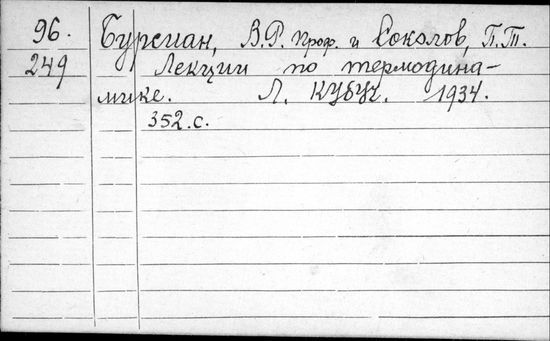 96. Бурсиан, В.Р. проф. и Соколов, П.Т.
249 Лекции по термодина-
мике. Л. КУБУЧ. 1934.
352.с.